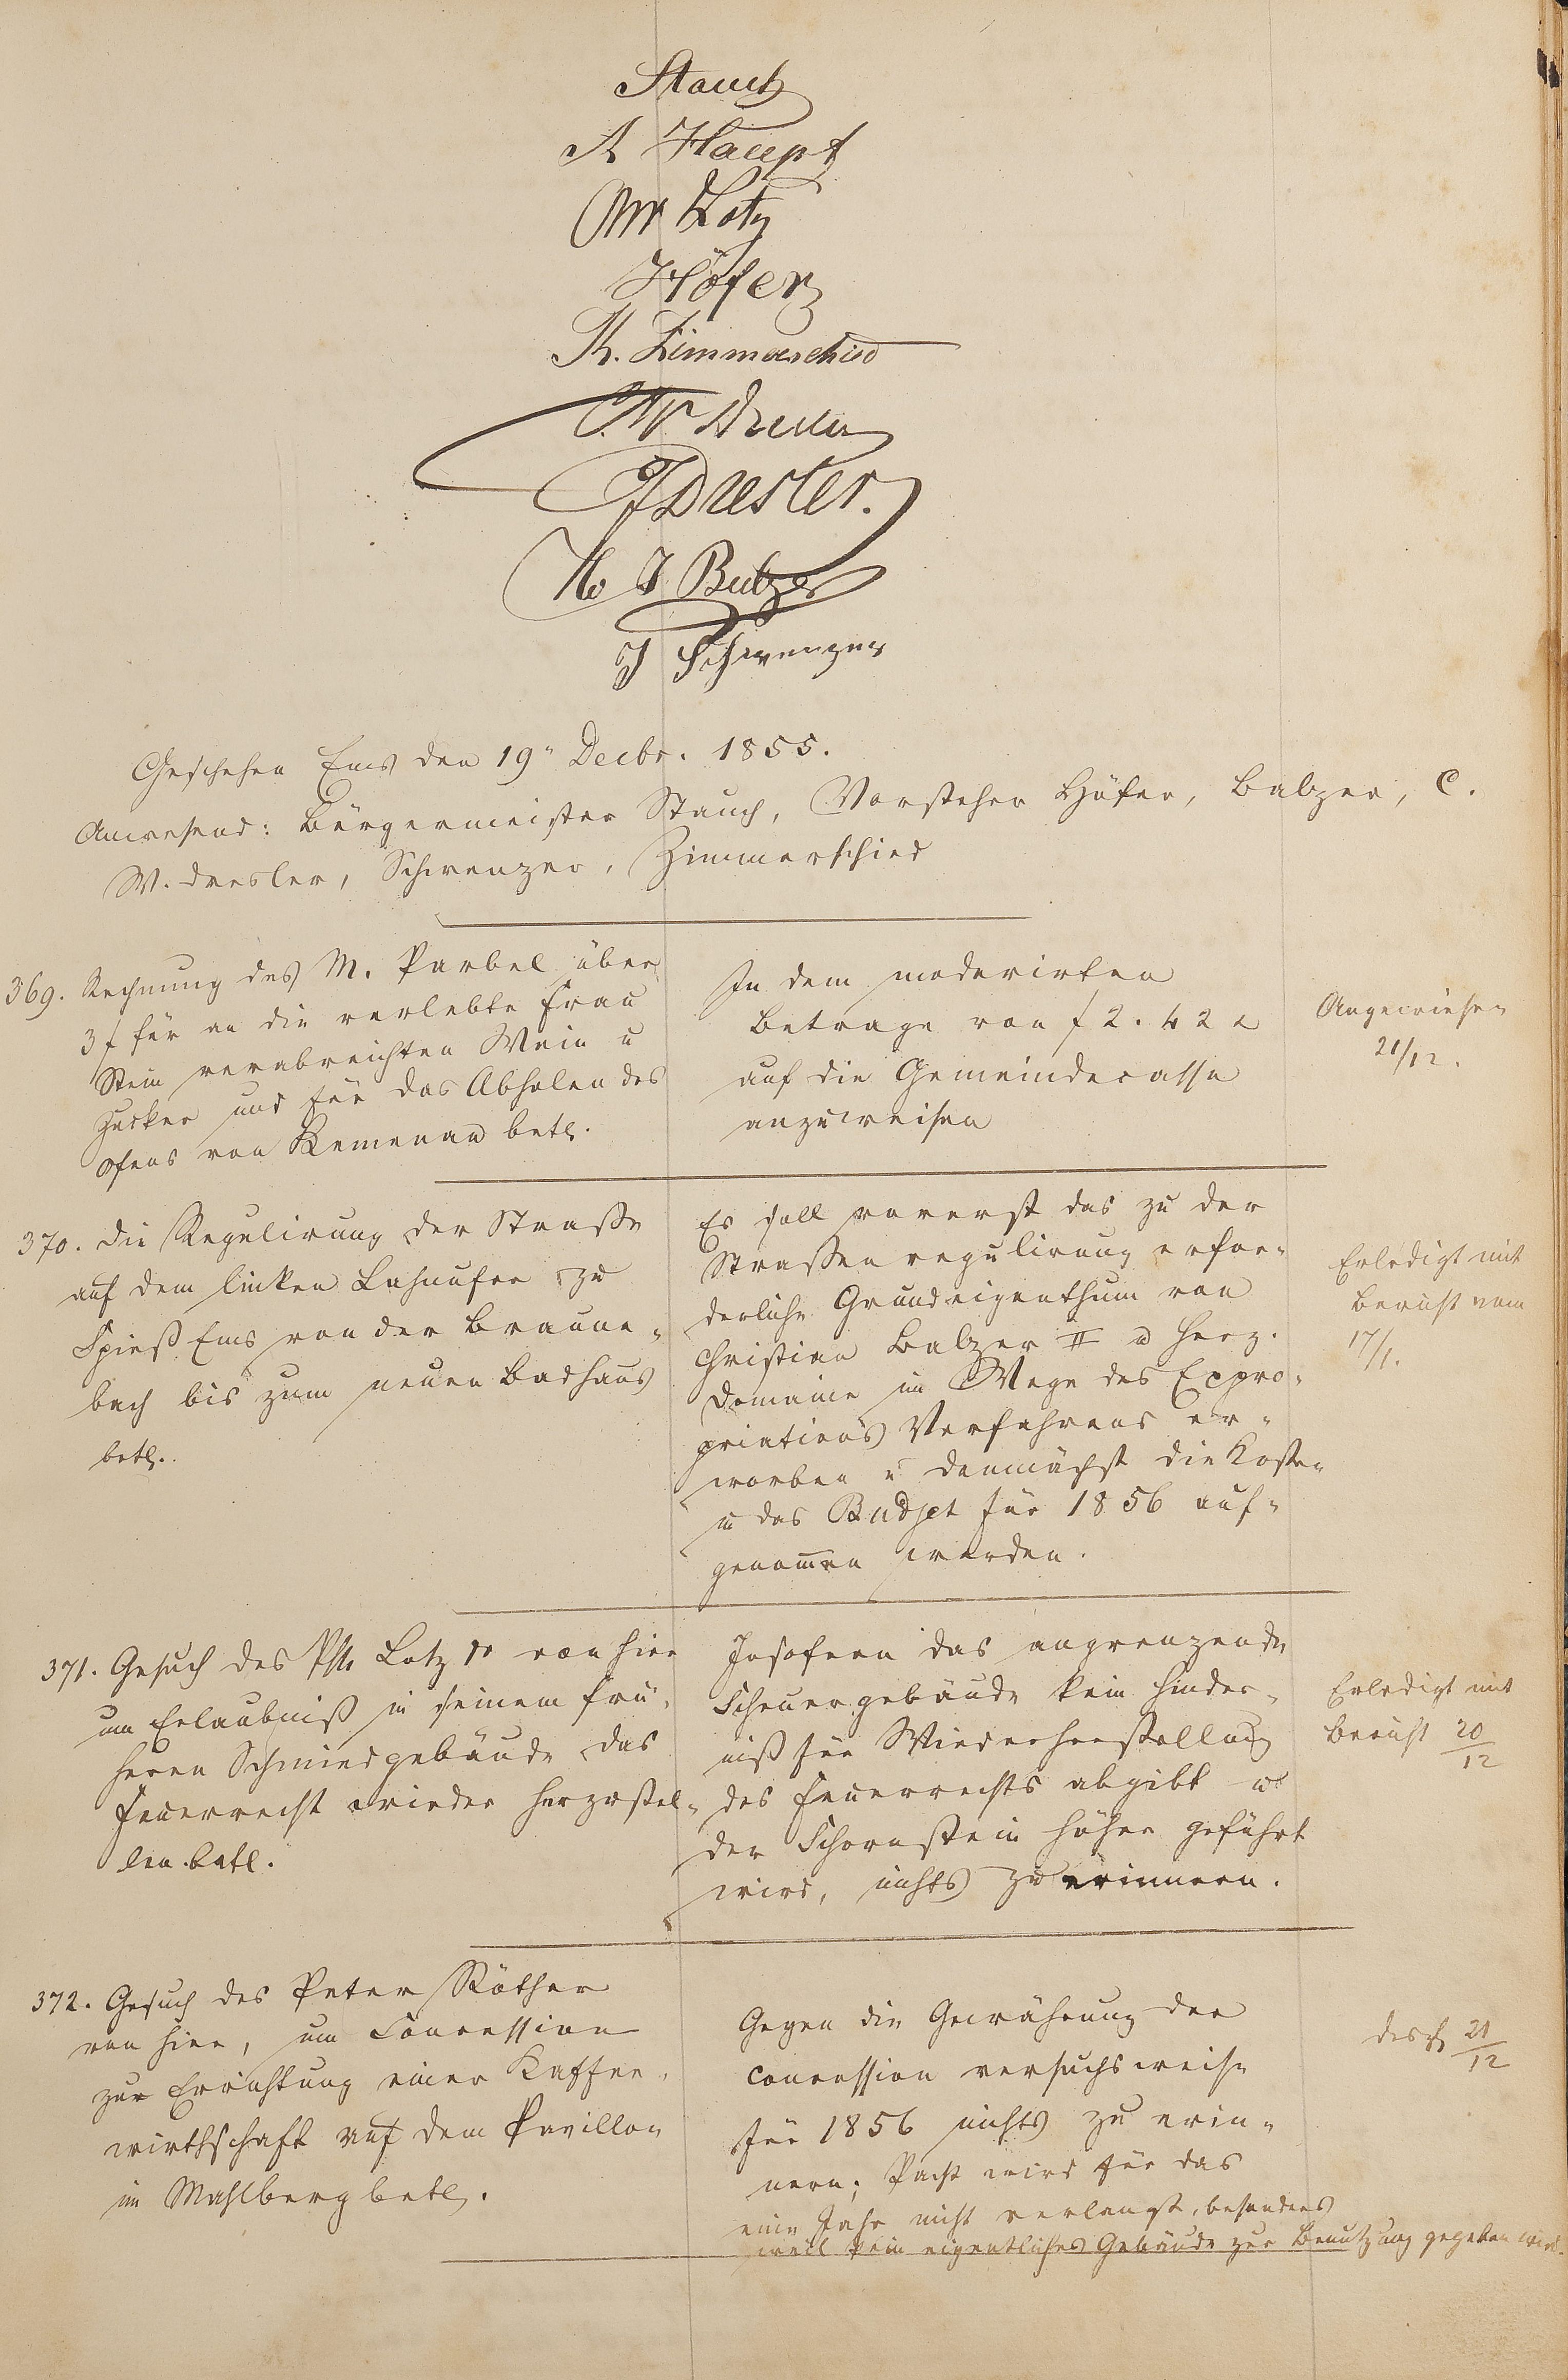 Stauch
A Haupt
Lotz
Höfer
K. Zimmerschied
CW Dresler
J Dresler.
J Balzer
J Schwenzer
Geschehen Ems den 19n Decbr. 1855.
Anwesend: Bürgermeister Stauch, Vorsteher Höfer, Balzer, C.
W. Dresler, Schwenzer, Zimmerschied
369. Rechnung des M. Parbel über
3 f für an die verlebte Frau
Stein verabreichten Wein u
Zucker und für das Abholen des
Ofens von Kemenau betr.
In dem moderirten
Betrage von f 2. 42 x
auf die Gemeindecasse
anzuweisen
Angewiesen
21/12.
370. Die Regulirung der Straße
auf dem linken Lahnufer zu
Spieß Ems von der Braune-
bach bis zum neuen Badhaus
betr.
Es soll vorerst das zu der
Straßenregulirung erfor-
derliche Grundeigenthum von
Christian Balzer II u Herz.
Domaine im Wege des Expro-
priations Verfahrens er-
worben u demnächst die Kosten
in das Budjet für 1856 auf-
genomen werden.
Erledigt mit
Bericht vom
17/1.
371. Gesuch des Ph. Lotz 1r von hier
um Erlaubniß in seinem frü-
heren Schmiedgebäude das
Feuerrecht wieder herzustel-
len betr.
Insofern das angrenzende
Scheuergebäude kein Hinder-
niß für Wiederherstellung
des Feuerrechts abgibt u
der Schornstein höher geführt
wird, nichts zu erinnern.
Erledigt mit
Bericht 20/12
372. Gesuch des Peter Röther
von hier, um Concession
zur Errichtung einer Kaffee-
wirthschaft auf dem Pavillon
im Mahlberg betr.
Gegen die Gewährung der
Concession versuchsweise
für 1856 nichts zu erin-
nern; Pacht wird für das
eine Jahr nicht verlangt, besonders
weil kein eigentliches Gebäude zur Benutzung gegeben wird.
desgl 21/12